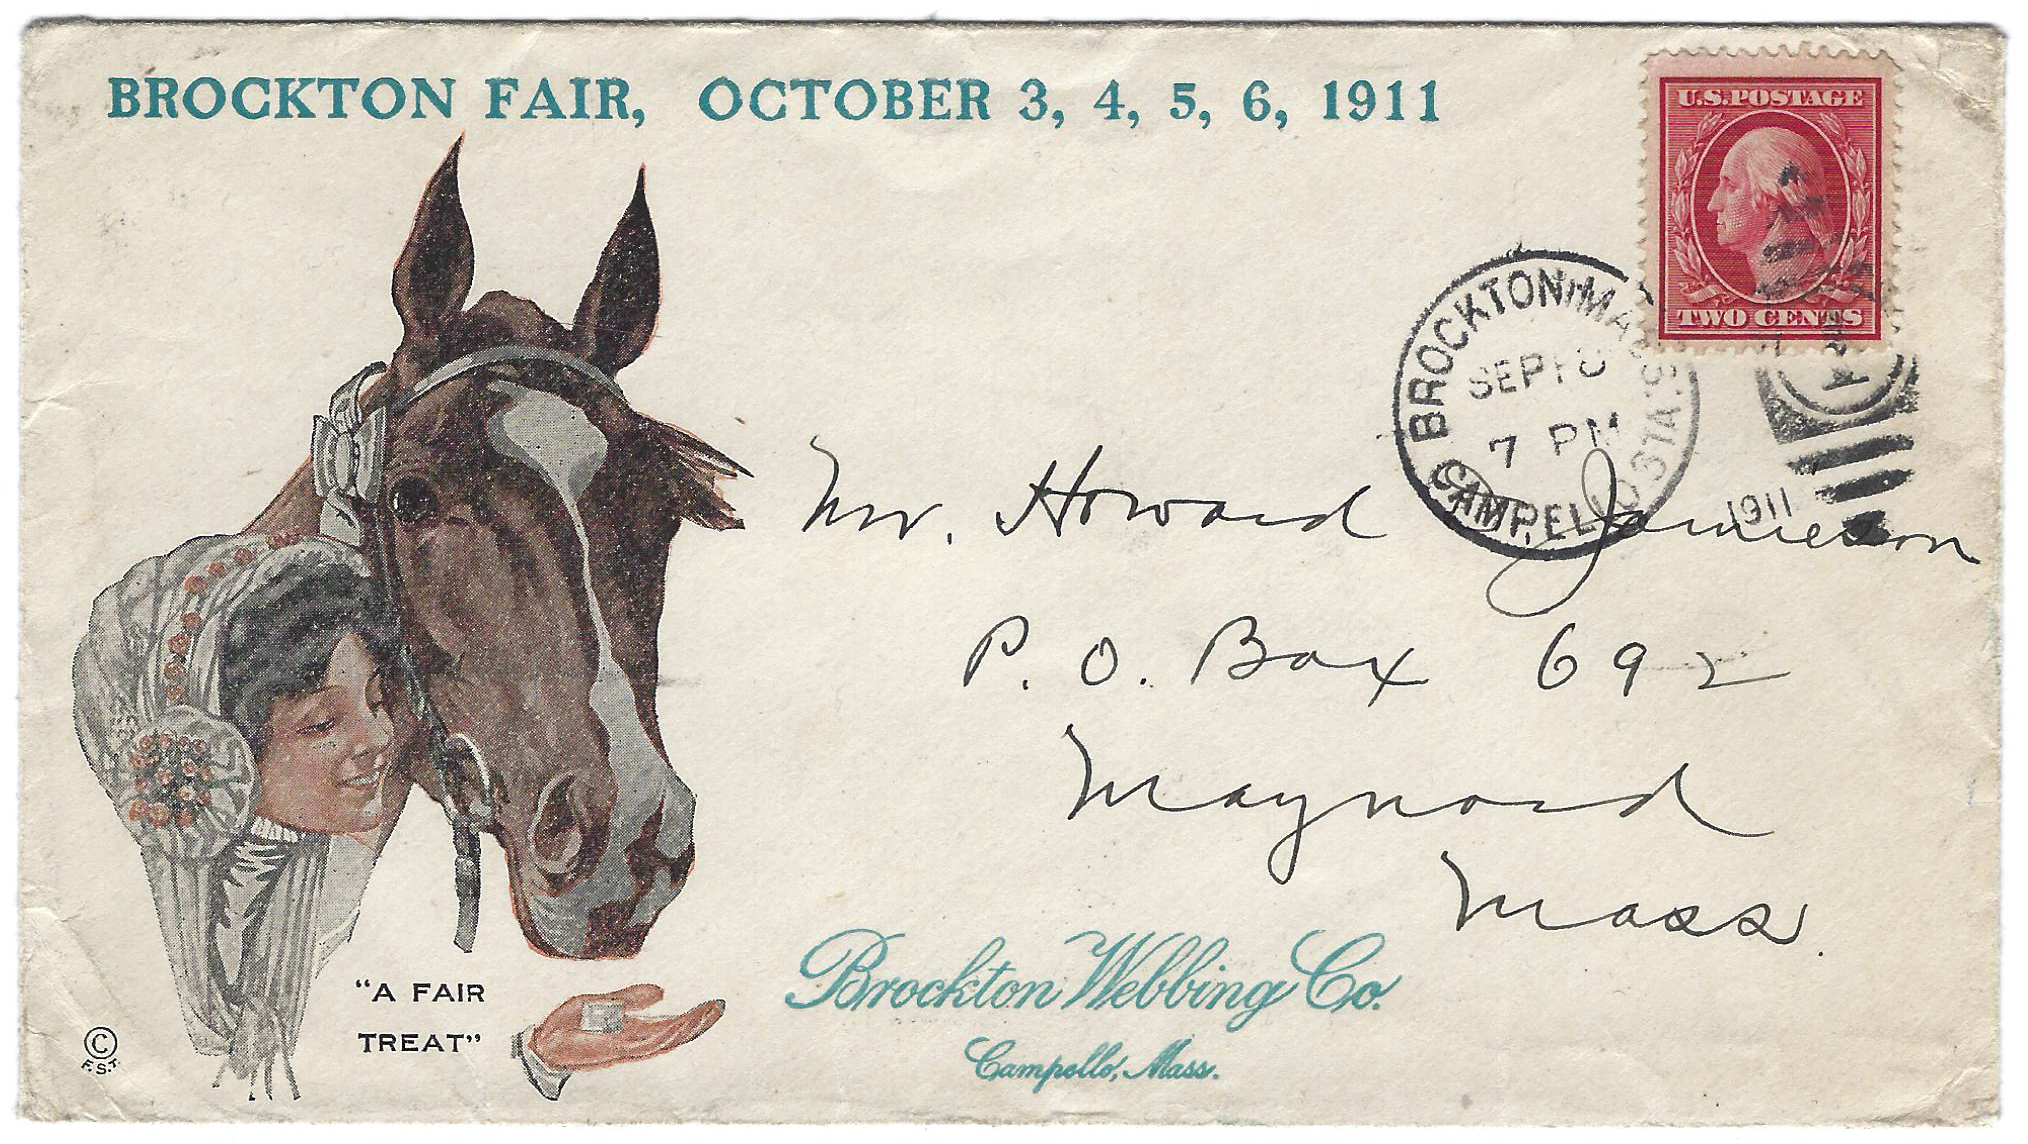 BROCKTON FAIR, OCTOBER 3, 4, 5, 6, 1911
U.S. POSTAGE
TWO CENTS
BROCKTON, MASS.
SEP
7 PM
1911
CAMPELLO STA.
Mr. Howard Jamieson
P. O. Box 692
Maynard
Mass.
"A FAIR
TREAT"
© F.S.T.
Brockton Webbing Co.
Campello, Mass.